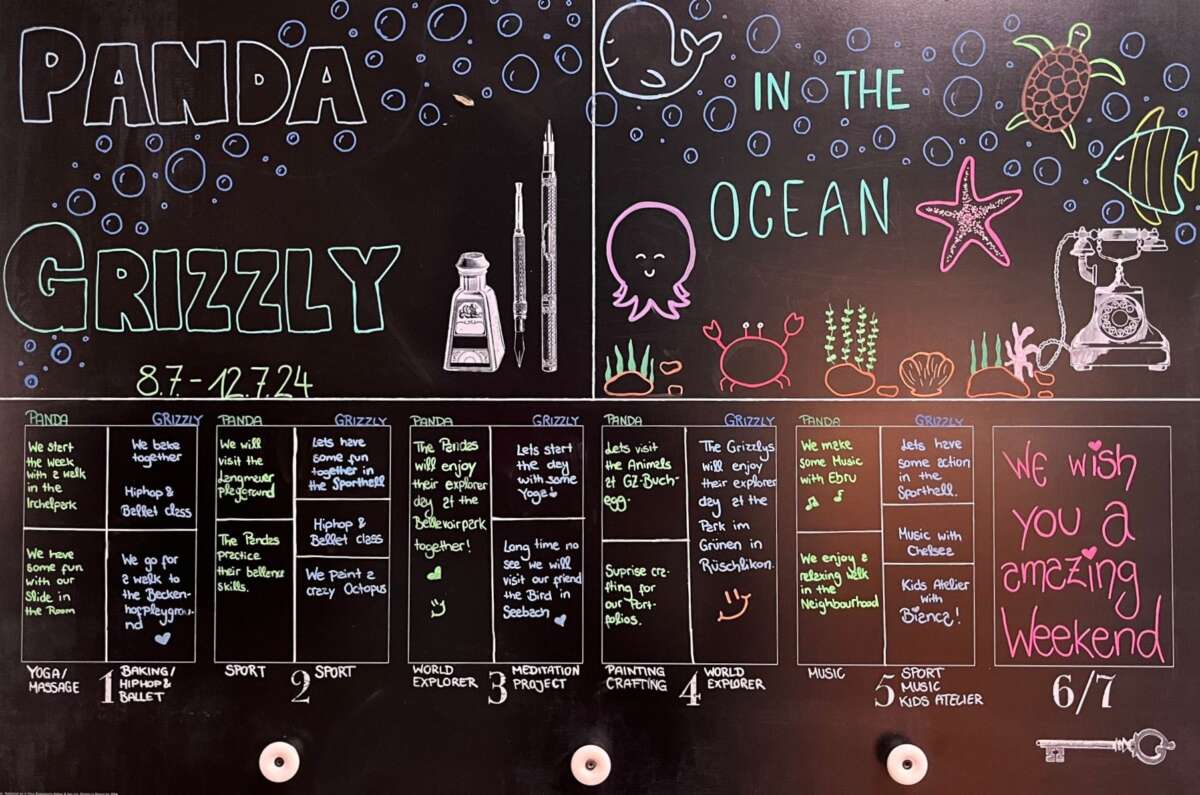 PANDA
GRIZZLY
8.7.-12.7.24
IN THE
OCEAN
PANDA
We start
the week
with a walk
in the
Irchelpark
We have
some fun
with our
Slide in
the Room
GRIZZLY
We bake
together
Hiphop &
Ballet class
We go for
a walk to
the Becken-
hofPlaygrou-
nd
YOGA/
MASSAGE
1
BAKING/
HIPHOP &
BALLET
PANDA
We will
visit the
Langmauer
playground
The Pandas
practice
their ballance
skills.
GRIZZLY
Lets have
some fun
together in
the Sporthall
Hiphop &
Ballet class
We paint a
crazy Octopus
SPORT
2
SPORT
PANDA
The Pandas
will enjoy
their explorer
day at the
Bellevoirpark
together!
GRIZZLY
Lets start
the day
with some
Yoga
Long time no
see we will
visit our friend
the Bird in
Seebach
WORLD
EXPLORER
3
MEDITATION
PROJECT
PANDA
Lets visit
the Animals
at GZ-Buch-
egg.
Suprise cra-
fting for
our Port-
folios.
GRIZZLY
The Grizzlys
will enjoy
their explorer
day at the
Park im
Grünen in
Rüschlikon.
PAINTING
CRAFTING
4
WORLD
EXPLORER
PANDA
We make
some Music
with Ebru
We enjoy a
relaxing walk
in the
Neighbourhood
GRIZZLY
Lets have
some action
in the
Sporthall.
Music with
Chelsea
Kids Atelier
with
Bianca!
MUSIC
5
SPORT
MUSIC
KIDS ATELIER
We wish
you a
amazing
Weekend
6/7